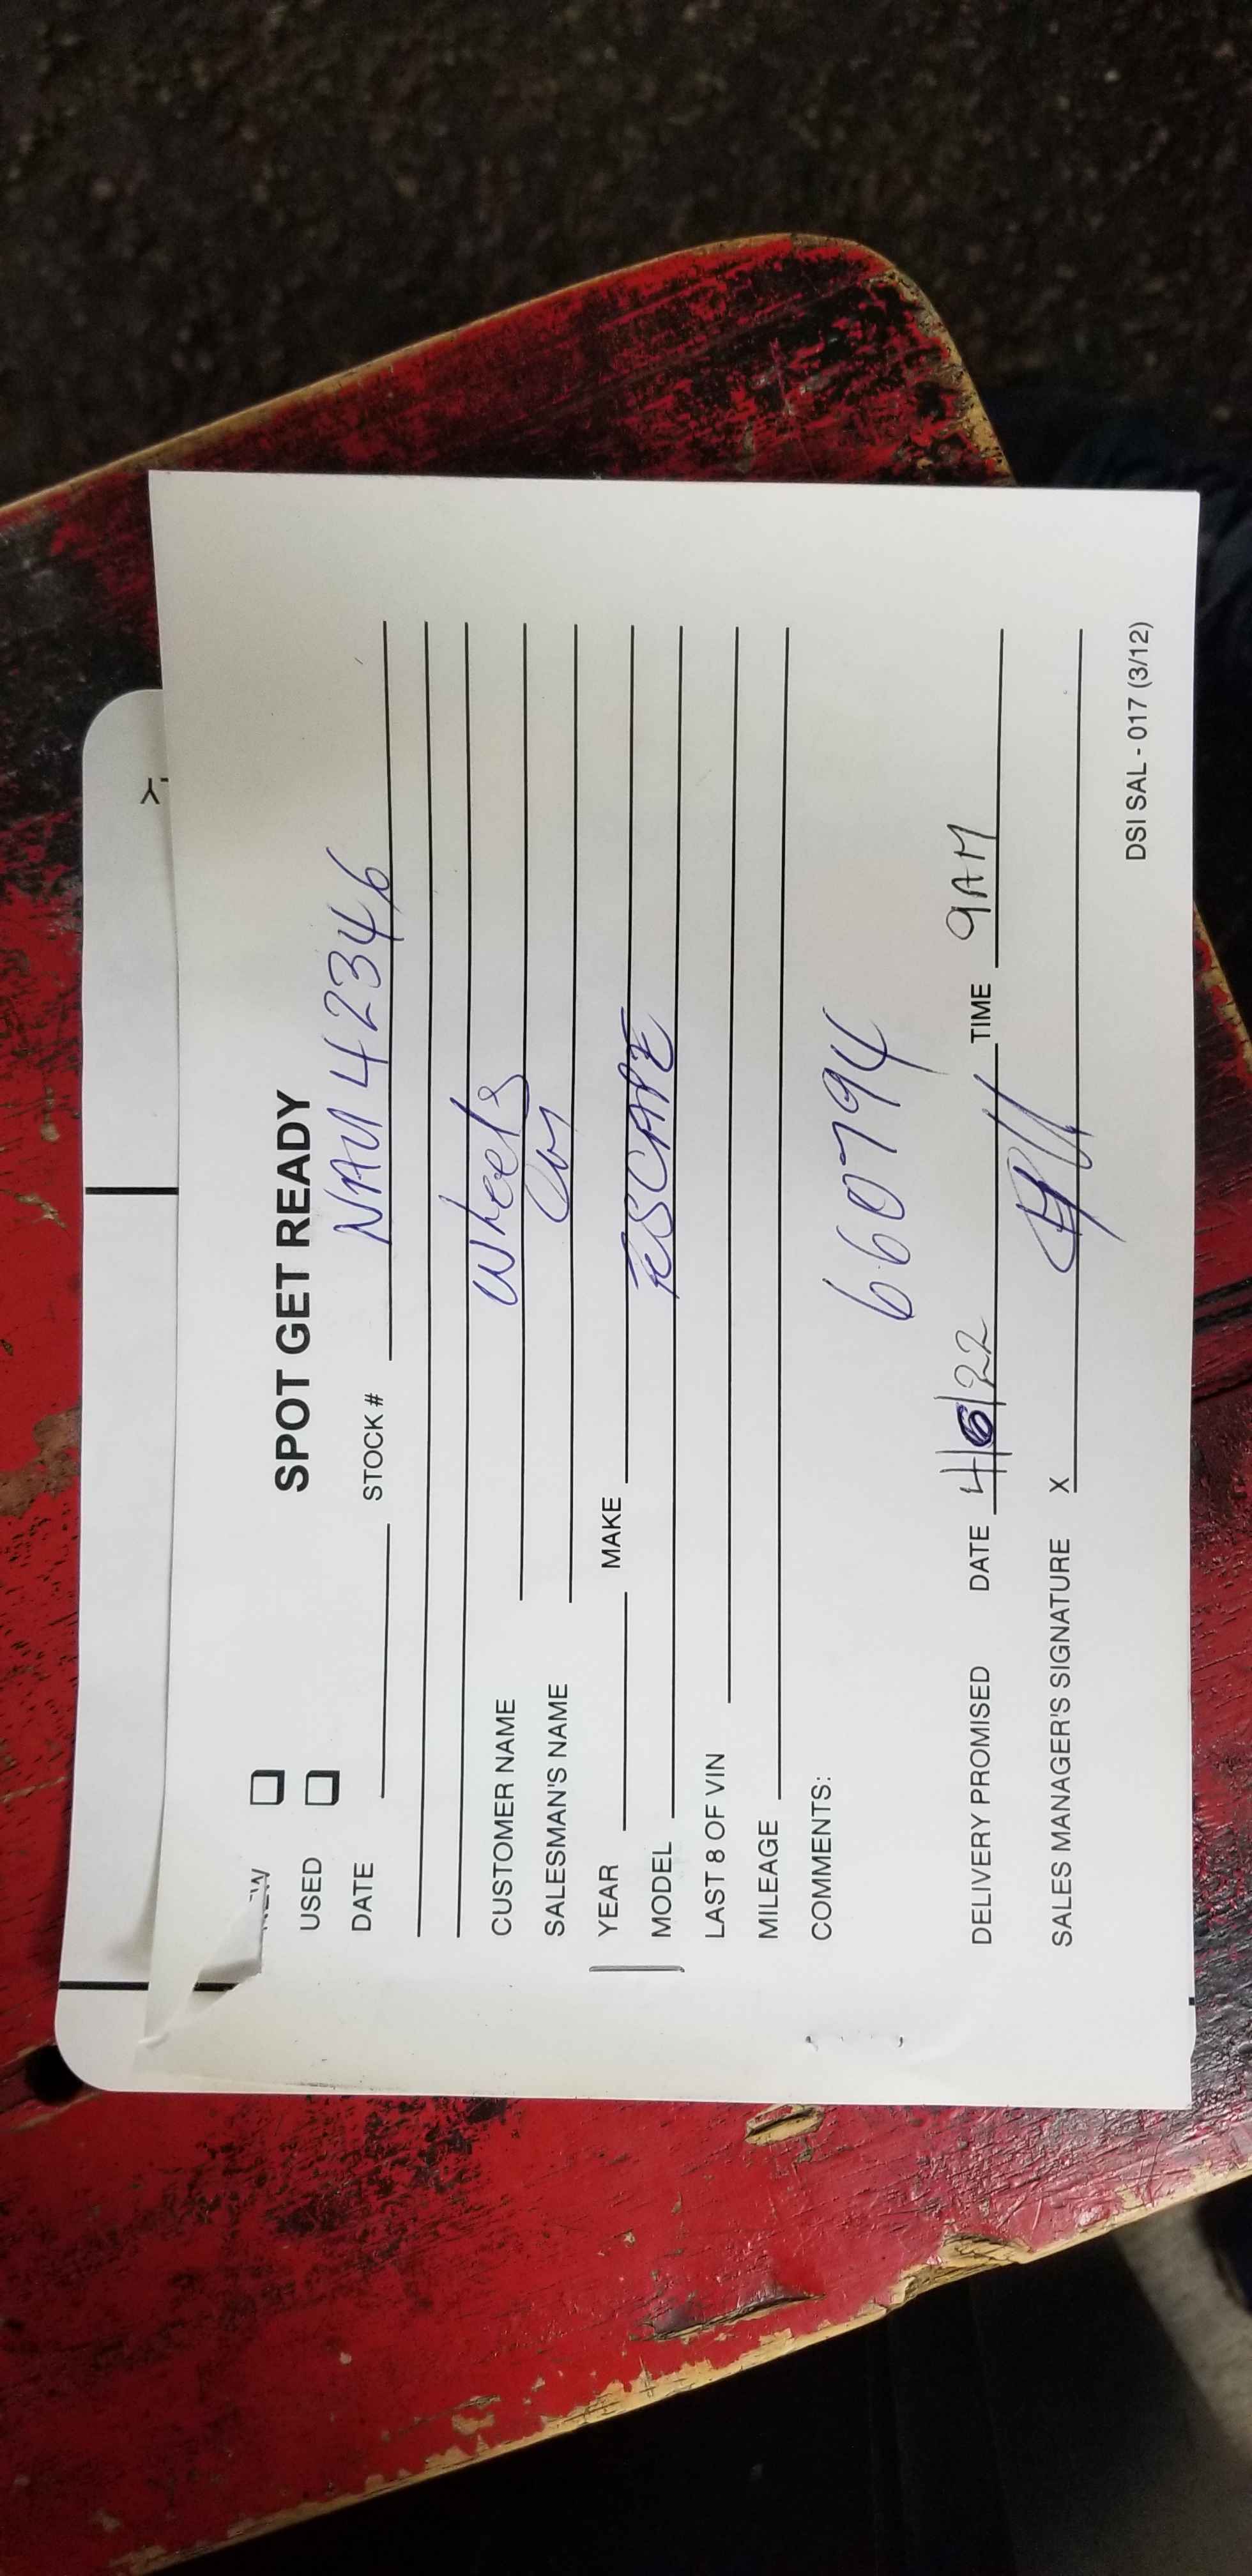 SPOT GET READY
NEW
USED
DATE STOCK # NAU 42346
CUSTOMER NAME Wheels
SALESMAN'S NAME
YEAR MAKE
MODEL ESCAPE
LAST 8 OF VIN
MILEAGE
COMMENTS:
660794
DELIVERY PROMISED DATE 4/6/22 TIME 9AM
SALES MANAGER'S SIGNATURE X
DSI SAL - 017 (3/12)
Y